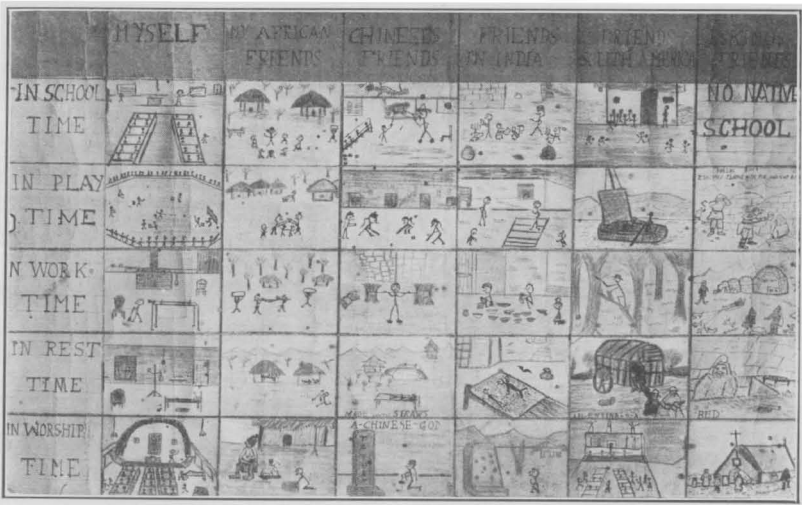 MYSELF
MY AFRICAN
FRIENDS
CHINEESE
FRIENDS
FRIENDS
IN INDIA
FRIENDS
SOUTH AMERICA
FRIENDS
IN SCHOOL
TIME
NO NATIVE
SCHOOL
IN PLAY
TIME
N WORK
TIME
IN REST
TIME
STRAWS
AND
IN WORSHIP
TIME
A-CHINESE-GOD